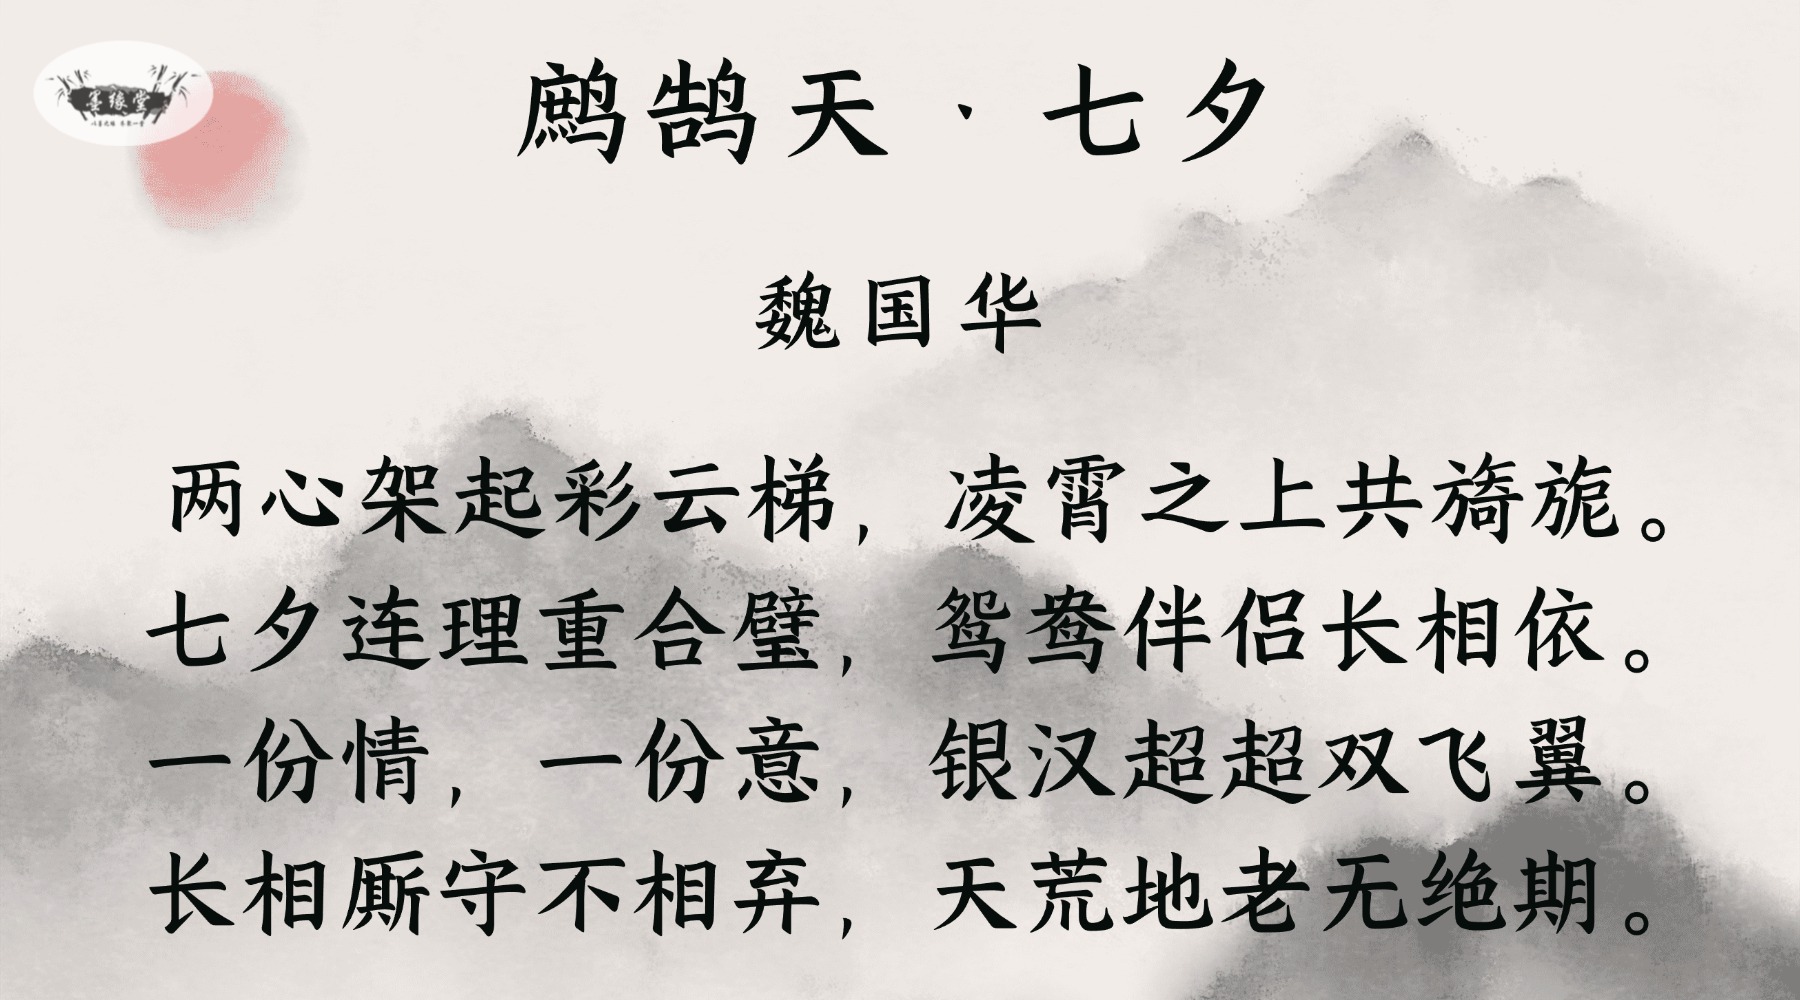 墨缘堂
鹧鸪天·七夕
魏国华
两心架起彩云梯，凌霄之上共旖旎。
七夕连理重合璧，鸳鸯伴侣长相依。
一份情，一份意，银汉超超双飞翼。
长相厮守不相弃，天荒地老无绝期。